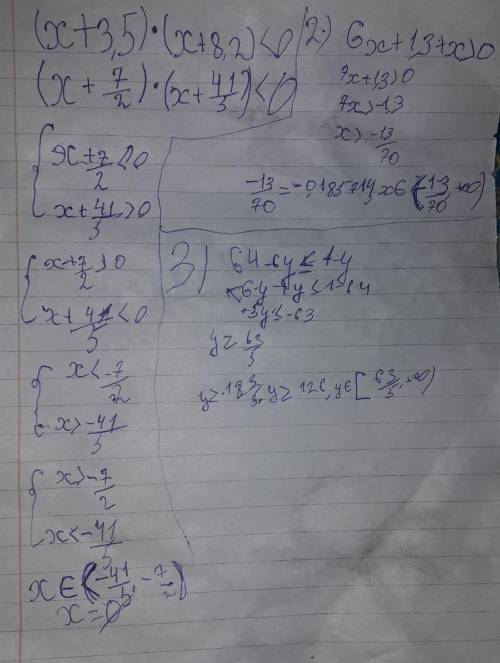 (x+3,5)·(x+8,2)<0
(x+7/2)·(x+41/5)<0
{x+7/2<0
x+41/5>0
{x+7/2>0
x+41/5<0
{x<-7/2
x>-41/5
{x>-7/2
x<-41/5
x∈(-41/5,-7/2)
x=∅
2) 6x+1,3+x>0
7x+1,3>0
7x>-1,3
x>-13/70
-13/70=-0,185714, x∈(-13/70,+∞)
3) 64-6y≤1-y
-6y+y≤1-64
-5y≤-63
y≥63/5
y≥12 3/5, y≥12,6, y∈[63/5,+∞)